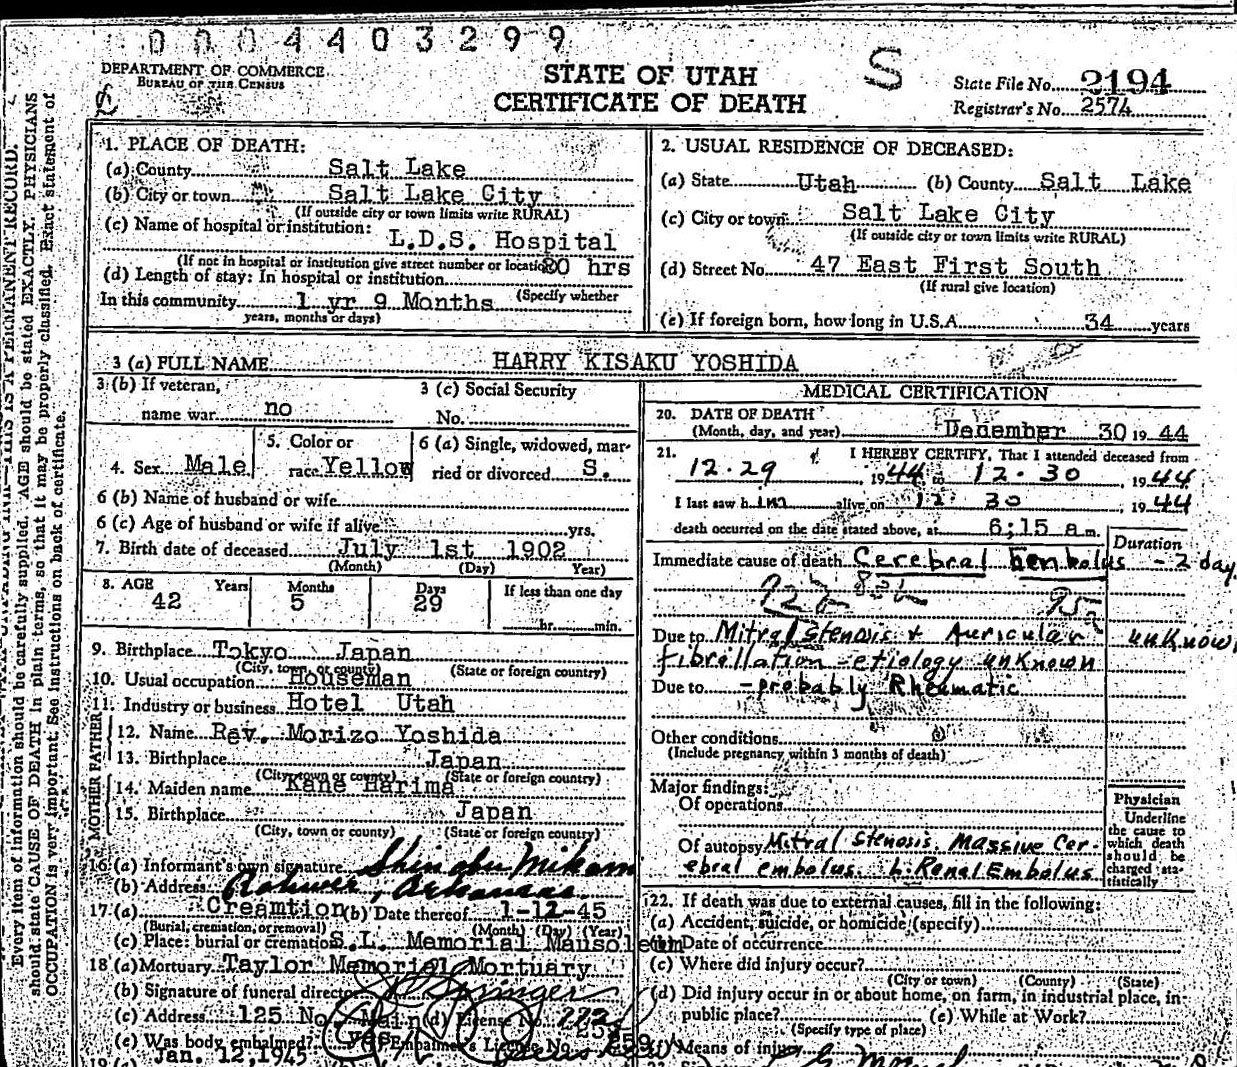 0004403299
DEPARTMENT OF COMMERCE
BUREAU OF THE CENSUS
STATE OF UTAH
CERTIFICATE OF DEATH
S
State File No. 2194
Registrar's No. 2574
1. PLACE OF DEATH:
(a) County Salt Lake
(b) City or town Salt Lake City
(If outside city or town limits write RURAL)
(c) Name of hospital or institution:
L.D.S. Hospital
(If not in hospital or institution give street number or location)
(d) Length of stay: In hospital or institution 20 hrs
(Specify whether
In this community 1 yr 9 Months
years, months or days)
2. USUAL RESIDENCE OF DECEASED:
(a) State Utah (b) County Salt Lake
(c) City or town Salt Lake City
(If outside city or town limits write RURAL)
(d) Street No. 47 East First South
(If rural give location)
(e) If foreign born, how long in U.S.A. 34 years
3 (a) FULL NAME HARRY KISAKU YOSHIDA
3 (b) If veteran,
name war no
3 (c) Social Security
No.
4. Sex Male
5. Color or
race Yellow
6 (a) Single, widowed, mar-
ried or divorced S.
6 (b) Name of husband or wife
6 (c) Age of husband or wife if alive yrs.
7. Birth date of deceased July 1st 1902
(Month) (Day) Year)
8. AGE Years Months Days If less than one day
42 5 29 hr. min.
9. Birthplace Tokyo Japan
(City, town, or county) (State or foreign country)
10. Usual occupation Houseman
11. Industry or business Hotel Utah
FATHER
12. Name Rev. Morizo Yoshida
13. Birthplace Japan
(City, town or county) (State or foreign country)
MOTHER
14. Maiden name Kane Harima
15. Birthplace Japan
(City, town or county) (State or foreign country)
16 (a) Informant's own signature Shinobu Mikam
(b) Address Rohwer, Arkansas
17 (a) Creamtion (b) Date thereof 1-12-45
(Burial, cremation, or removal) (Month) (Day) (Year)
(c) Place: burial or cremation S.L. Memorial Mausoleum
18 (a) Mortuary Taylor Memorial Mortuary
(b) Signature of funeral director Springer
(c) Address 125 No. Main (d) License No.
(e) Was body embalmed? yes Embalmer's License No.
Jan. 12, 1945
MEDICAL CERTIFICATION
20. DATE OF DEATH
(Month, day, and year) December 30 1944
21. I HEREBY CERTIFY, That I attended deceased from
12-29, 1944 to 12-30, 1944
I last saw him alive on 12 30, 1944
death occurred on the date stated above, at 6;15 a m.
Duration
Immediate cause of death Cerebral Embolus - 2 day
95a
Due to Mitral Stenosis + Auricular unknow
fibrillation - etiology unknown
Due to - probably Rheumatic
Other conditions
(Include pregnancy within 3 months of death)
Major findings:
Of operations
Of autopsy Mitral Stenosis. Massive Cer-
ebral embolus. Renal Embolus
Physician
Underline
the cause to
which death
should be
charged sta-
tistically
22. If death was due to external causes, fill in the following:
(a) Accident, suicide, or homicide (specify)
(b) Date of occurrence
(c) Where did injury occur?
(City or town) (County) (State)
(d) Did injury occur in or about home, on farm, in industrial place, in
public place? (e) While at Work?
(Specify type of place)
(f) Means of injury
Every item of information should be carefully supplied. AGE should be stated EXACTLY. PHYSICIANS
should state CAUSE OF DEATH in plain terms, so that it may be properly classified. Exact statement of
OCCUPATION is very important. See instructions on back of certificate.